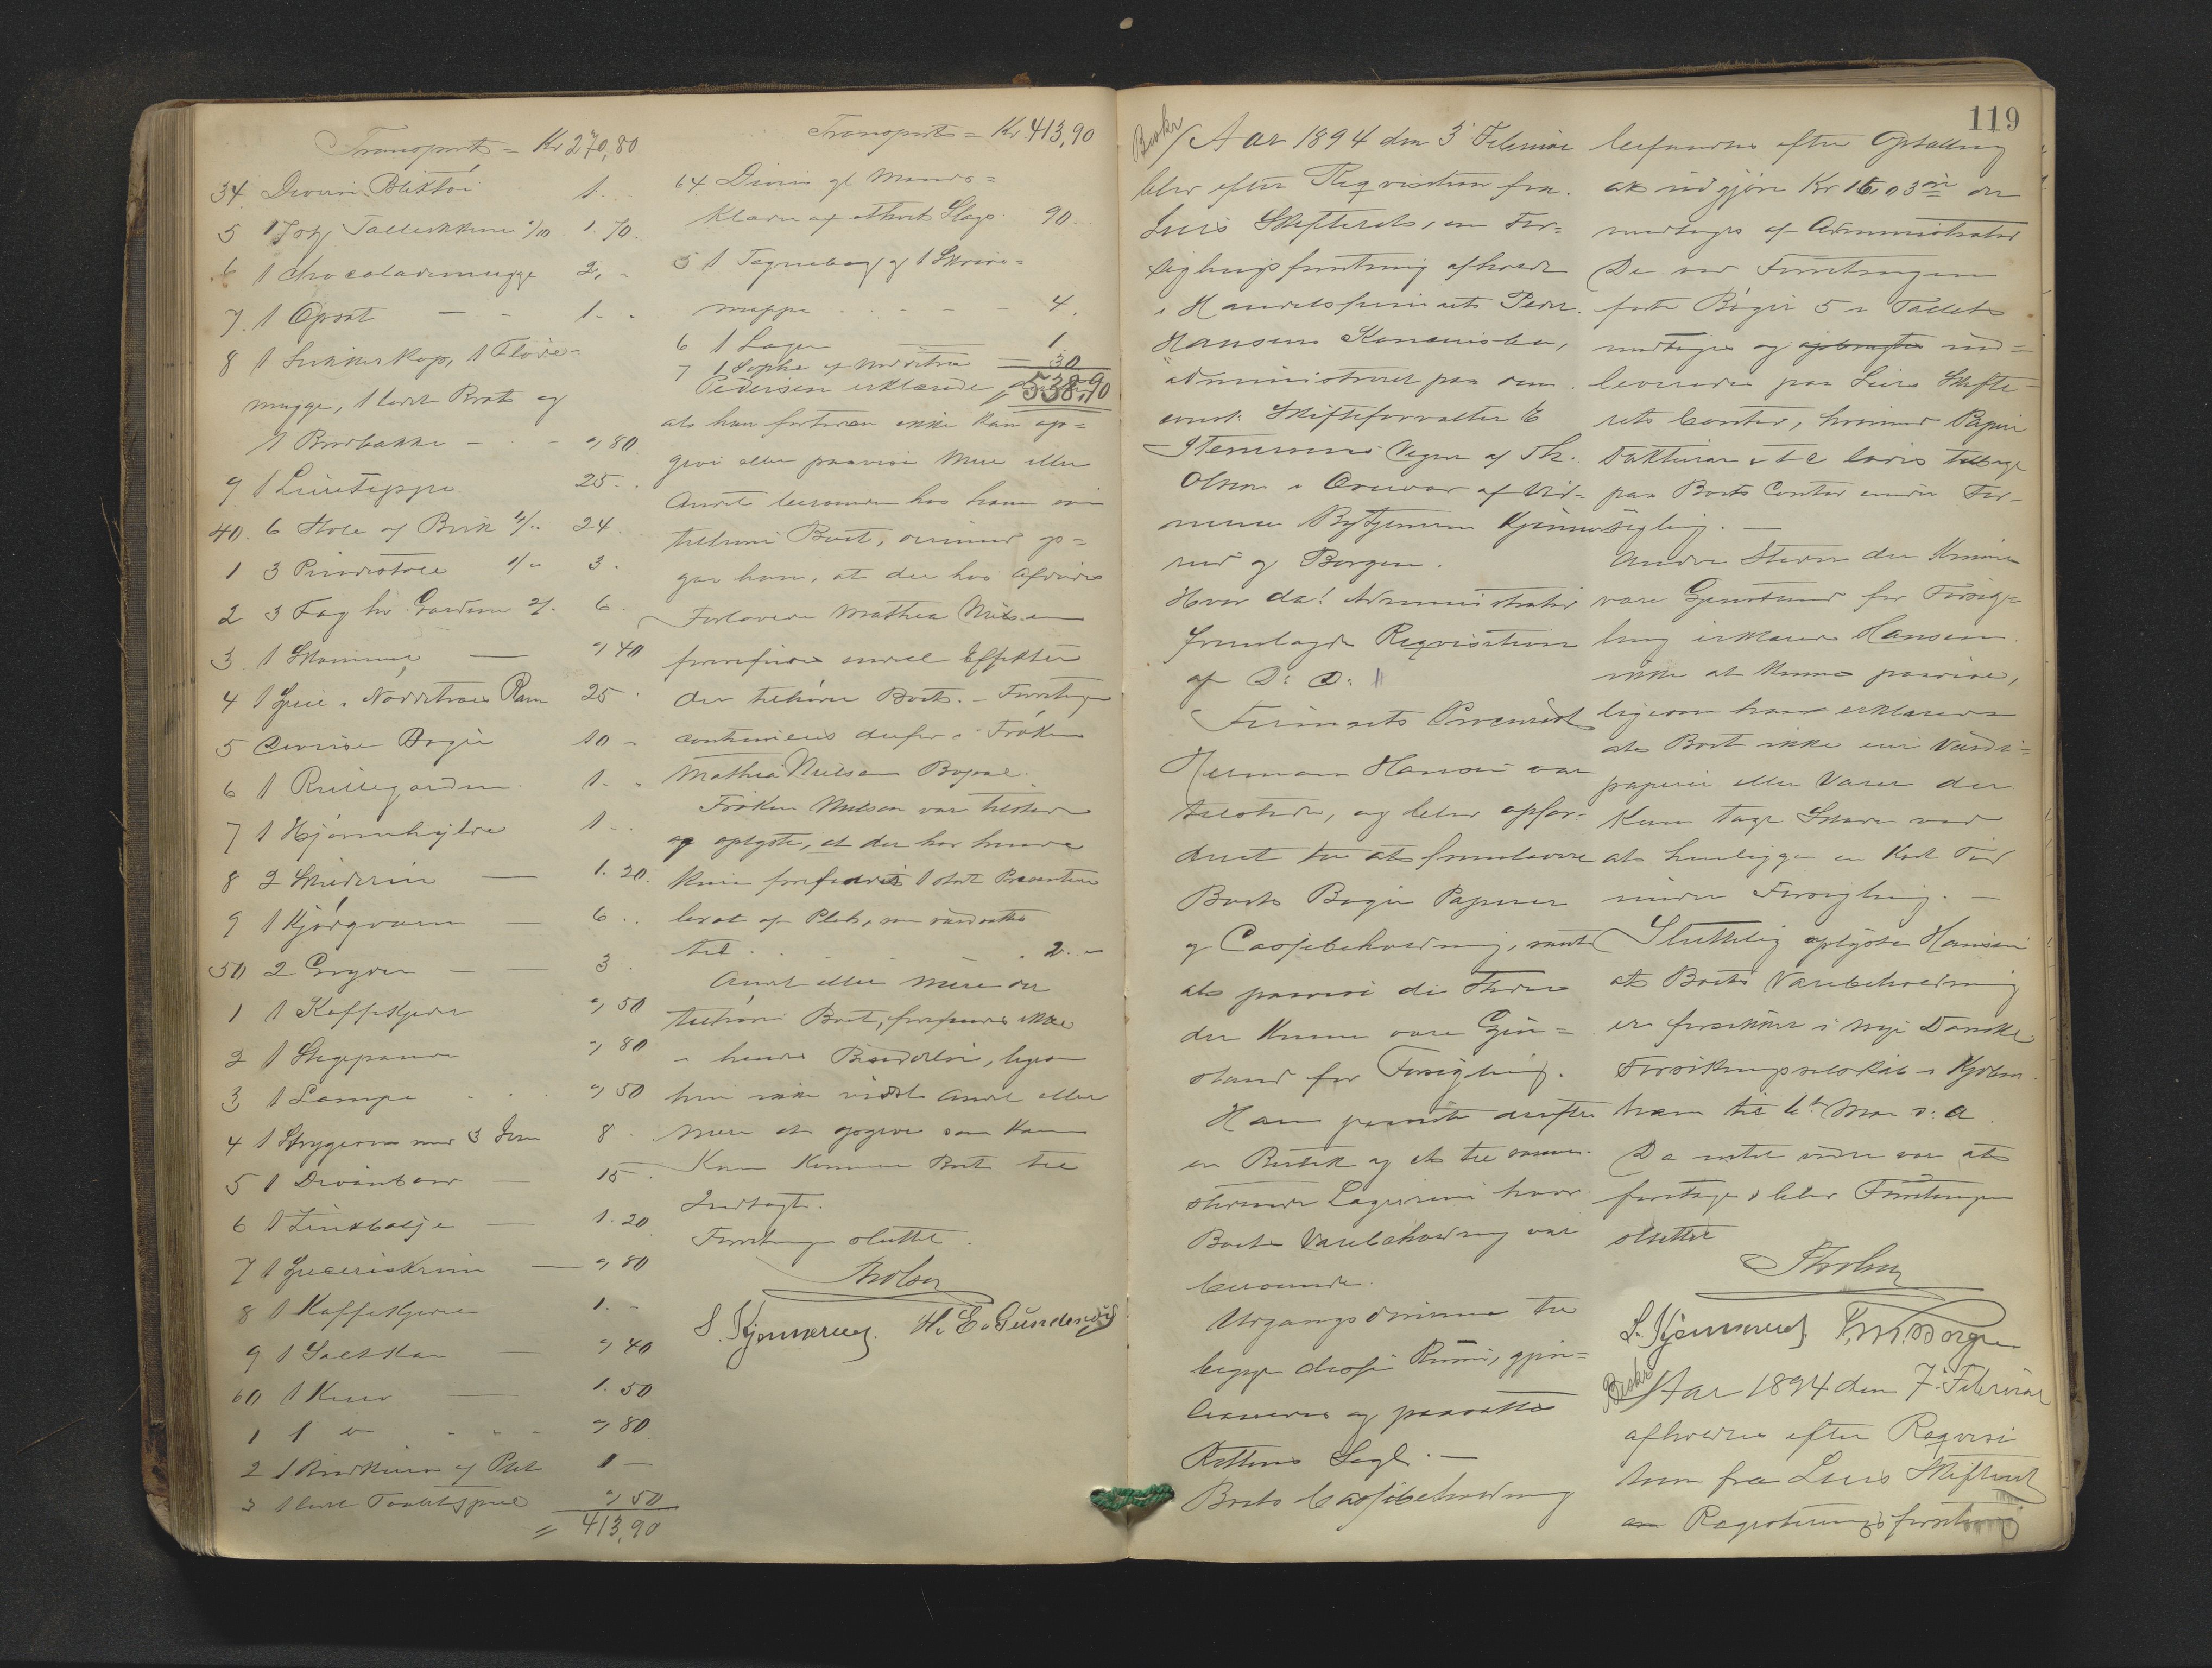 Transport = Kr 270,80
34 Diverse Bliktøi 1. -
5 17 Tallerkkener 1. 70.
6 1 Chocolademugge 2, -
7. 1 Opsat — - 1. -
8 1 Sukkerkop, 1 Fløde-
mugge, 1 lidet Bræt og
1 Brødbakke - - " 80
9 1 Linetæppe 25. .
40. 6 Stole af Birk 4/" 24.
1 3 Pindestole 1/" 3.
2 3 Fag hv. Gardiner 2/. 6.
3. 1 Skammel — " 40
4 1 Speil i Nøddetræes Ram 25.
5 Diverse Bøger 10 -
6 1 Rullegardin 1. -
7 1 Hjørnehylde 1 . .
8 2 Skilderier — 1. 20.
9 1 Kjødqværn — 6. .
50 2 Gryder — — 3.
1 1 Kaffekjedel " 50
2 1 Stegepande " 80
3 1 Lampe - . . " 50
4 1 Strygeovn med 3 Jern 8 .
5 1 Divanbord — 15 -
6 1 Zinkbalje — 1. 20
7 1 Specerieskrin — " 80
8 1 Kaffekjedel 1. -
9 1 Saltkar — " 40
60 1 Kurv — 1. 50
1 1 do - - - " 80
2 1 Brødkurv af Plet 1 —
3 1 lidet Toiletspeil " 50
= 413,90
Transport = Kr 413,90
64. Divese gl. Mands=
klæder af ethvert Slags 90. .
5 1 Tegnebog og 1 Skrive=
mappe . . - - - 4.
6 1 Lagen — 1.
7 1 Sopha af Nøddetræ — 30
Pedersen erklærede = 538,90
at han forøvrigt ikke kan op=
give eller paavise Mere eller
Andet beroende hos ham som
tilhører Boet, derimod op=
gav han, at der hos Afdødes
Forlovede Mathea Nielsen
forefindes endel Effekter
der tilhører Boet. - Forretningen
continueres derfor i Frøken
Mathea Nielsens Bopæl.
Frøken Nielsen var tilstede
og oplyste, at der hos hende
kun forefandtes 1 stort Præsenteer
bræt af Plet, som værdsattes
til . . . . 2. -
Andet eller Mere der
tilhører Boet, forefindes ikke
i hendes Besiddelse, ligesom
hun ikke vidste Andet eller
Mere at opgive som kan
Kan komme Boet til
Indtægt.
Forretningen sluttet.
Th Olsen
S. Kjennerud. H. E. Gundersen
119
Beskr
/ Aar 1894 den 3' Februar
blev efter Reqvisition fra
Liers Skifteret, en For=
seglingsforretning afholdt
i Handelsfirmaets Peder
Hansens Konkursbo,
administreret paa den
const. Skifteforvalter E
Stenums Vegne af Th.
Olsen i Overvær af Vid-
nerne Bytjenerne Kjenne-
rud og Borgen.
Hvor da! Administrator
fremlagde Reqvisition
af D: D:
Firmaets Procurist
Herman Hansen var
tilstede, og blev opfor-
dret til at fremlevere
Boets Bøger Papirer
og Cassebeholdning, samt
at paavise de Steder
der kunne være Gjen=
stand for Forsegling.
Han paaviste derefter
en Butik og et til samme
stødende Lagerrum hvor
Boets Varebeholdning var
beroende.
Udgangsdørene til
begge disse Rum, gjen=
lukkedes og paasattes
Rettens Segl. —
Boets Cassebeholdning
befandtes efter Optælling
at udgjøre Kr 16,03 øre der
modtoges af Administrator
De ved Forretningen
førte Bøger 5 i Tallet
modtoges og opbragtes ind=
leveredes paa Liers Skifte-
rets Contor, hvorimod Papirer
Fakturaer etc lodes tilbage
paa Boets Contor under For-
segling. —
Andre Steder der kunne
være Gjenstand for Forseg-
ling erklærede Hansen
ikke at kunne paavise,
ligesom han erklærede
at Boet ikke eier Værdi=
papirer eller Varer der
kan tage Skade ved
at henligge en kort Tid
under Forsegling. —
Sluttelig oplyste Hansen
at Boets Varebeholdning
er forsikret i Nye Danske
Forsikringsselskab i Kjøben-
havn til 6te Mai d: A
Da intet videre var at
foretage, blev Forretningen
sluttet
Th Olsen
S. Kjennerud. P. M. Borgen
Beskr
/ Aar 1894 den 7' Februar
afholdtes efter Reqvisi
tion fra Liers Skifteret
en Registreringsforretning